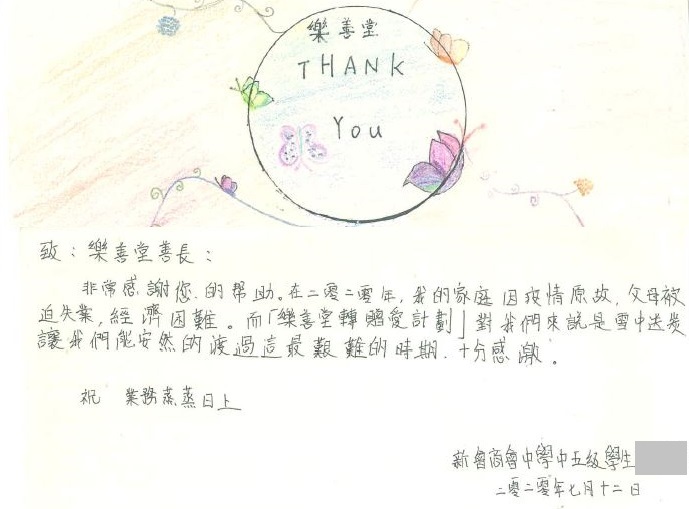 樂善堂
THANK
You
致：樂善堂善長：
非常感謝您的幫助。在二零二零年，我的家庭因疫情原故，父母被
迫失業，經濟困難。而「樂善堂轉贈愛計劃」對我們來說是雪中送炭
讓我們能安然的渡過這最艱難的時期．十分感激。
祝 業務蒸蒸日上
新會商會中學中五級學生
二零二零年七月十二日